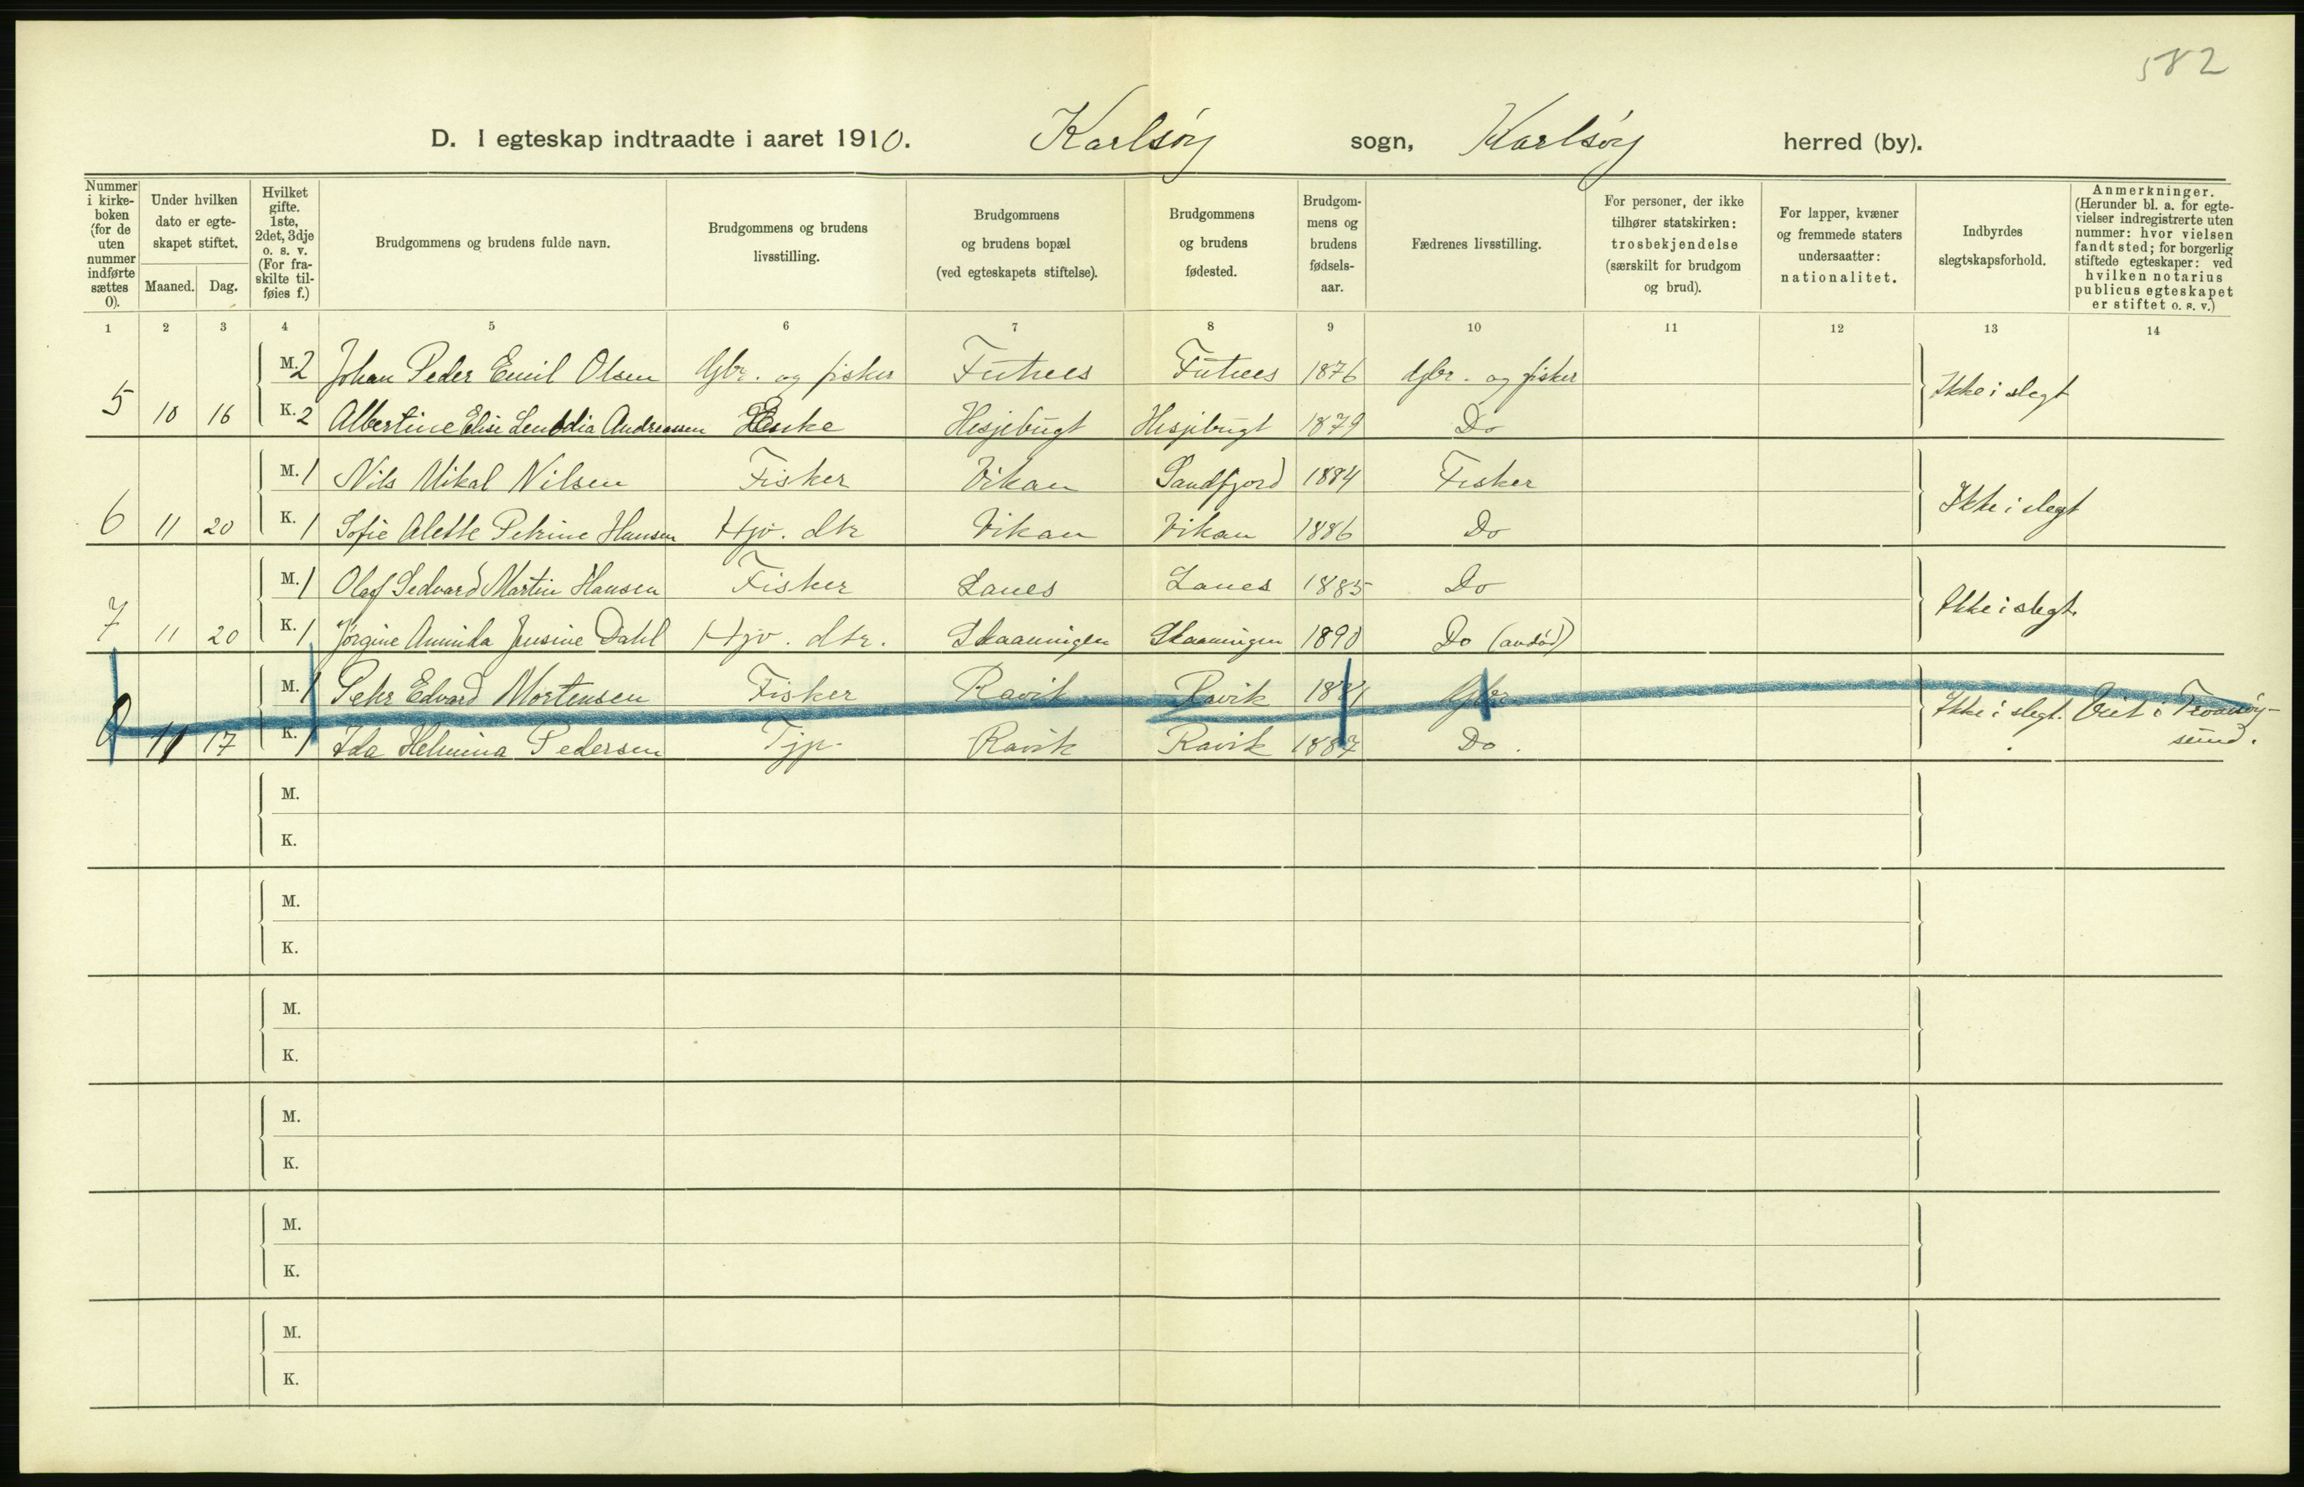 582
D. I egteskap indtraadte i aaret 1910. Karlsöy sogn, Karlsöy herred (by).
Nummer i kirke-boken (for de uten nummer indførte sættes 0).
Under hvilken dato er egte-skapet stiftet.
Maaned. Dag.
Hvilket gifte. 1ste, 2det, 3dje o. s. v. (For fra-skilte til-føies f.)
Brudgommens og brudens fulde navn.
Brudgommens og brudens livsstilling.
Brudgommens og brudens bopæl (ved egteskapets stiftelse).
Brudgommens og brudens fødested.
Brudgom-mens og brudens fødsels-aar.
Fædrenes livsstilling.
For personer, der ikke tilhører statskirken: trosbekjendelse (særskilt for brudgom og brud).
For lapper, kvæner og fremmede staters undersaatter: nationalitet.
Indbyrdes slegtskapsforhold.
Anmerkninger. (Herunder bl. a. for egte-vielser indregistrerte uten nummer: hvor vielsen fandt sted; for borgerlig stiftede egteskaper: ved hvilken notarius publicus egteskapet er stiftet o. s. v.)
1 2 3 4 5 6 7 8 9 10 11 12 13 14
M. 2 Johan Peder Emil Olsen Gbr. og fisker 1876 Gbr. og fisker
5 10 16 K. 2 Albertine Elise Andreassen Enke Hesjebugt Hesjebugt 1879 Do Ikke i slegt
M. 1 Nils Mikal Nilsen Fisker Vikan Sandfjord 1884 Fisker
6 11 20 K. 1 Sofie Alette Petrine Hansen Hjv. dtr Vikan Vikan 1886 Do Ikke i slegt
M. 1 Olaf Sedvard Martin Hansen Fisker Lanes Lanes 1885 Do
7 11 20 K. 1 Jørgine Annika Jensine Dahl Hjv. dtr. Skaaningen Skaaningen 1890 Do (avdød) Ikke i slegt
M. 1 Peter Edvard Mortensen Fisker Ravik Ravik Gbr.
0 11 17 K. 1 Ida Helmina Pedersen Tjp. Ravik Ravik 1887 Do. Ikke i slegt. Viet i Tromsöy-
sund.
M.
K.
M.
K.
M.
K.
M.
K.
M.
K.
M.
K.